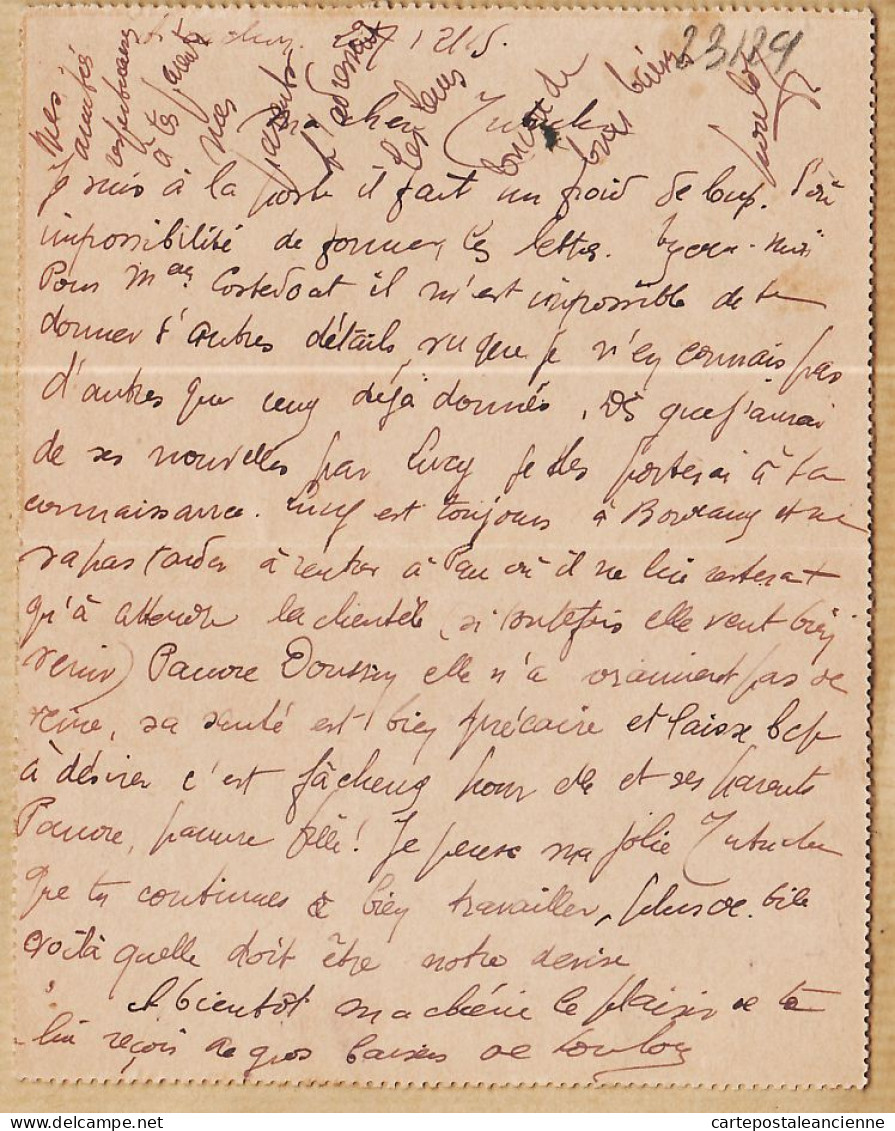 29 / 12 / 15.
23/129
Mes
amitiés
respectueuses
à tes parents
mes
parents
t'adressent
les leurs
Ma chère
Je suis à la poste il fait un froid de loup. D'où
impossibilité de fermer cette lettre. Excuse-moi
Pour Mme Costedoat il m'est impossible de te
donner d'autres détails, vu que je n'en connais pas
d'autres que ceux déjà donnés. Dès que j'aurai
de ses nouvelles par Lucy je les porterai à ta
connaissance. Lucy est toujours à Bordeaux et ne
va pas tarder à rentrer à Pau où il ne lui restera
qu'à attendre la clientèle (si toutefois elle veut bien
venir) Pauvre Doussin elle n'a vraiment pas de
veine, sa santé est bien précaire et laisse bcp
à désirer c'est fâcheux pour elle et ses parents
Pauvre, pauvre fille! Je pense ma jolie
que tu continues à bien travailler, plus de bile
voilà quelle doit être notre devise
A bientôt ma chérie le plaisir de te
lire reçois de gros baisers de
cartepostaleancienne